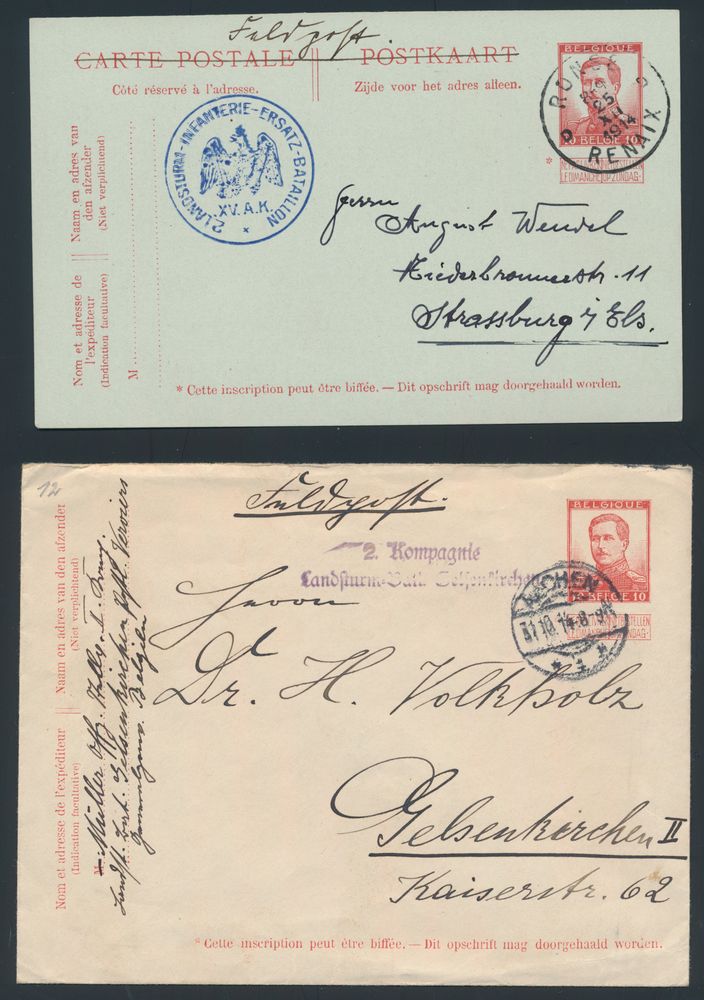 Feldpost.
CARTE POSTALE || POSTKAART
Côté réservé à l'adresse.
Zijde voor het adres alleen.
BELGIQUE
10 BELGIE 10
LE DIMANCHE OP ZONDAG
RONSE
25
XII
1914
RENAIX
2. LANDSTURM-INFANTERIE-ERSATZ-BATAILLON
XV. A.K.
Naam en adres van
den afzender
(Niet verplichtend)
Nom et adresse de
l'expéditeur
(Indication facultative)
M
Herrn
August Wendel
Niederbronnerstr. 11
Strassburg i/Els.
* Cette inscription peut être biffée. — Dit opschrift mag doorgehaald worden.
12
Feldpost.
BELGIQUE
10 BELGIE 10
LE DIMANCHE OP ZONDAG
2. Kompagnie
Landsturm-Batl. Gelsenkirchen
AACHEN
31.10.14.8-9
* 1 *
Naam en adres van den afzender
(Niet verplichtend)
Nom et adresse de l'expéditeur
(Indication facultative)
M
Müller Off.
Landst. Bat. Gelsenkirchen Verviers
Belgien
Herrn
Dr. H. Volkholz
Gelsenkirchen II
Kaiserstr. 62
* Cette inscription peut être biffée. — Dit opschrift mag doorgehaald worden.